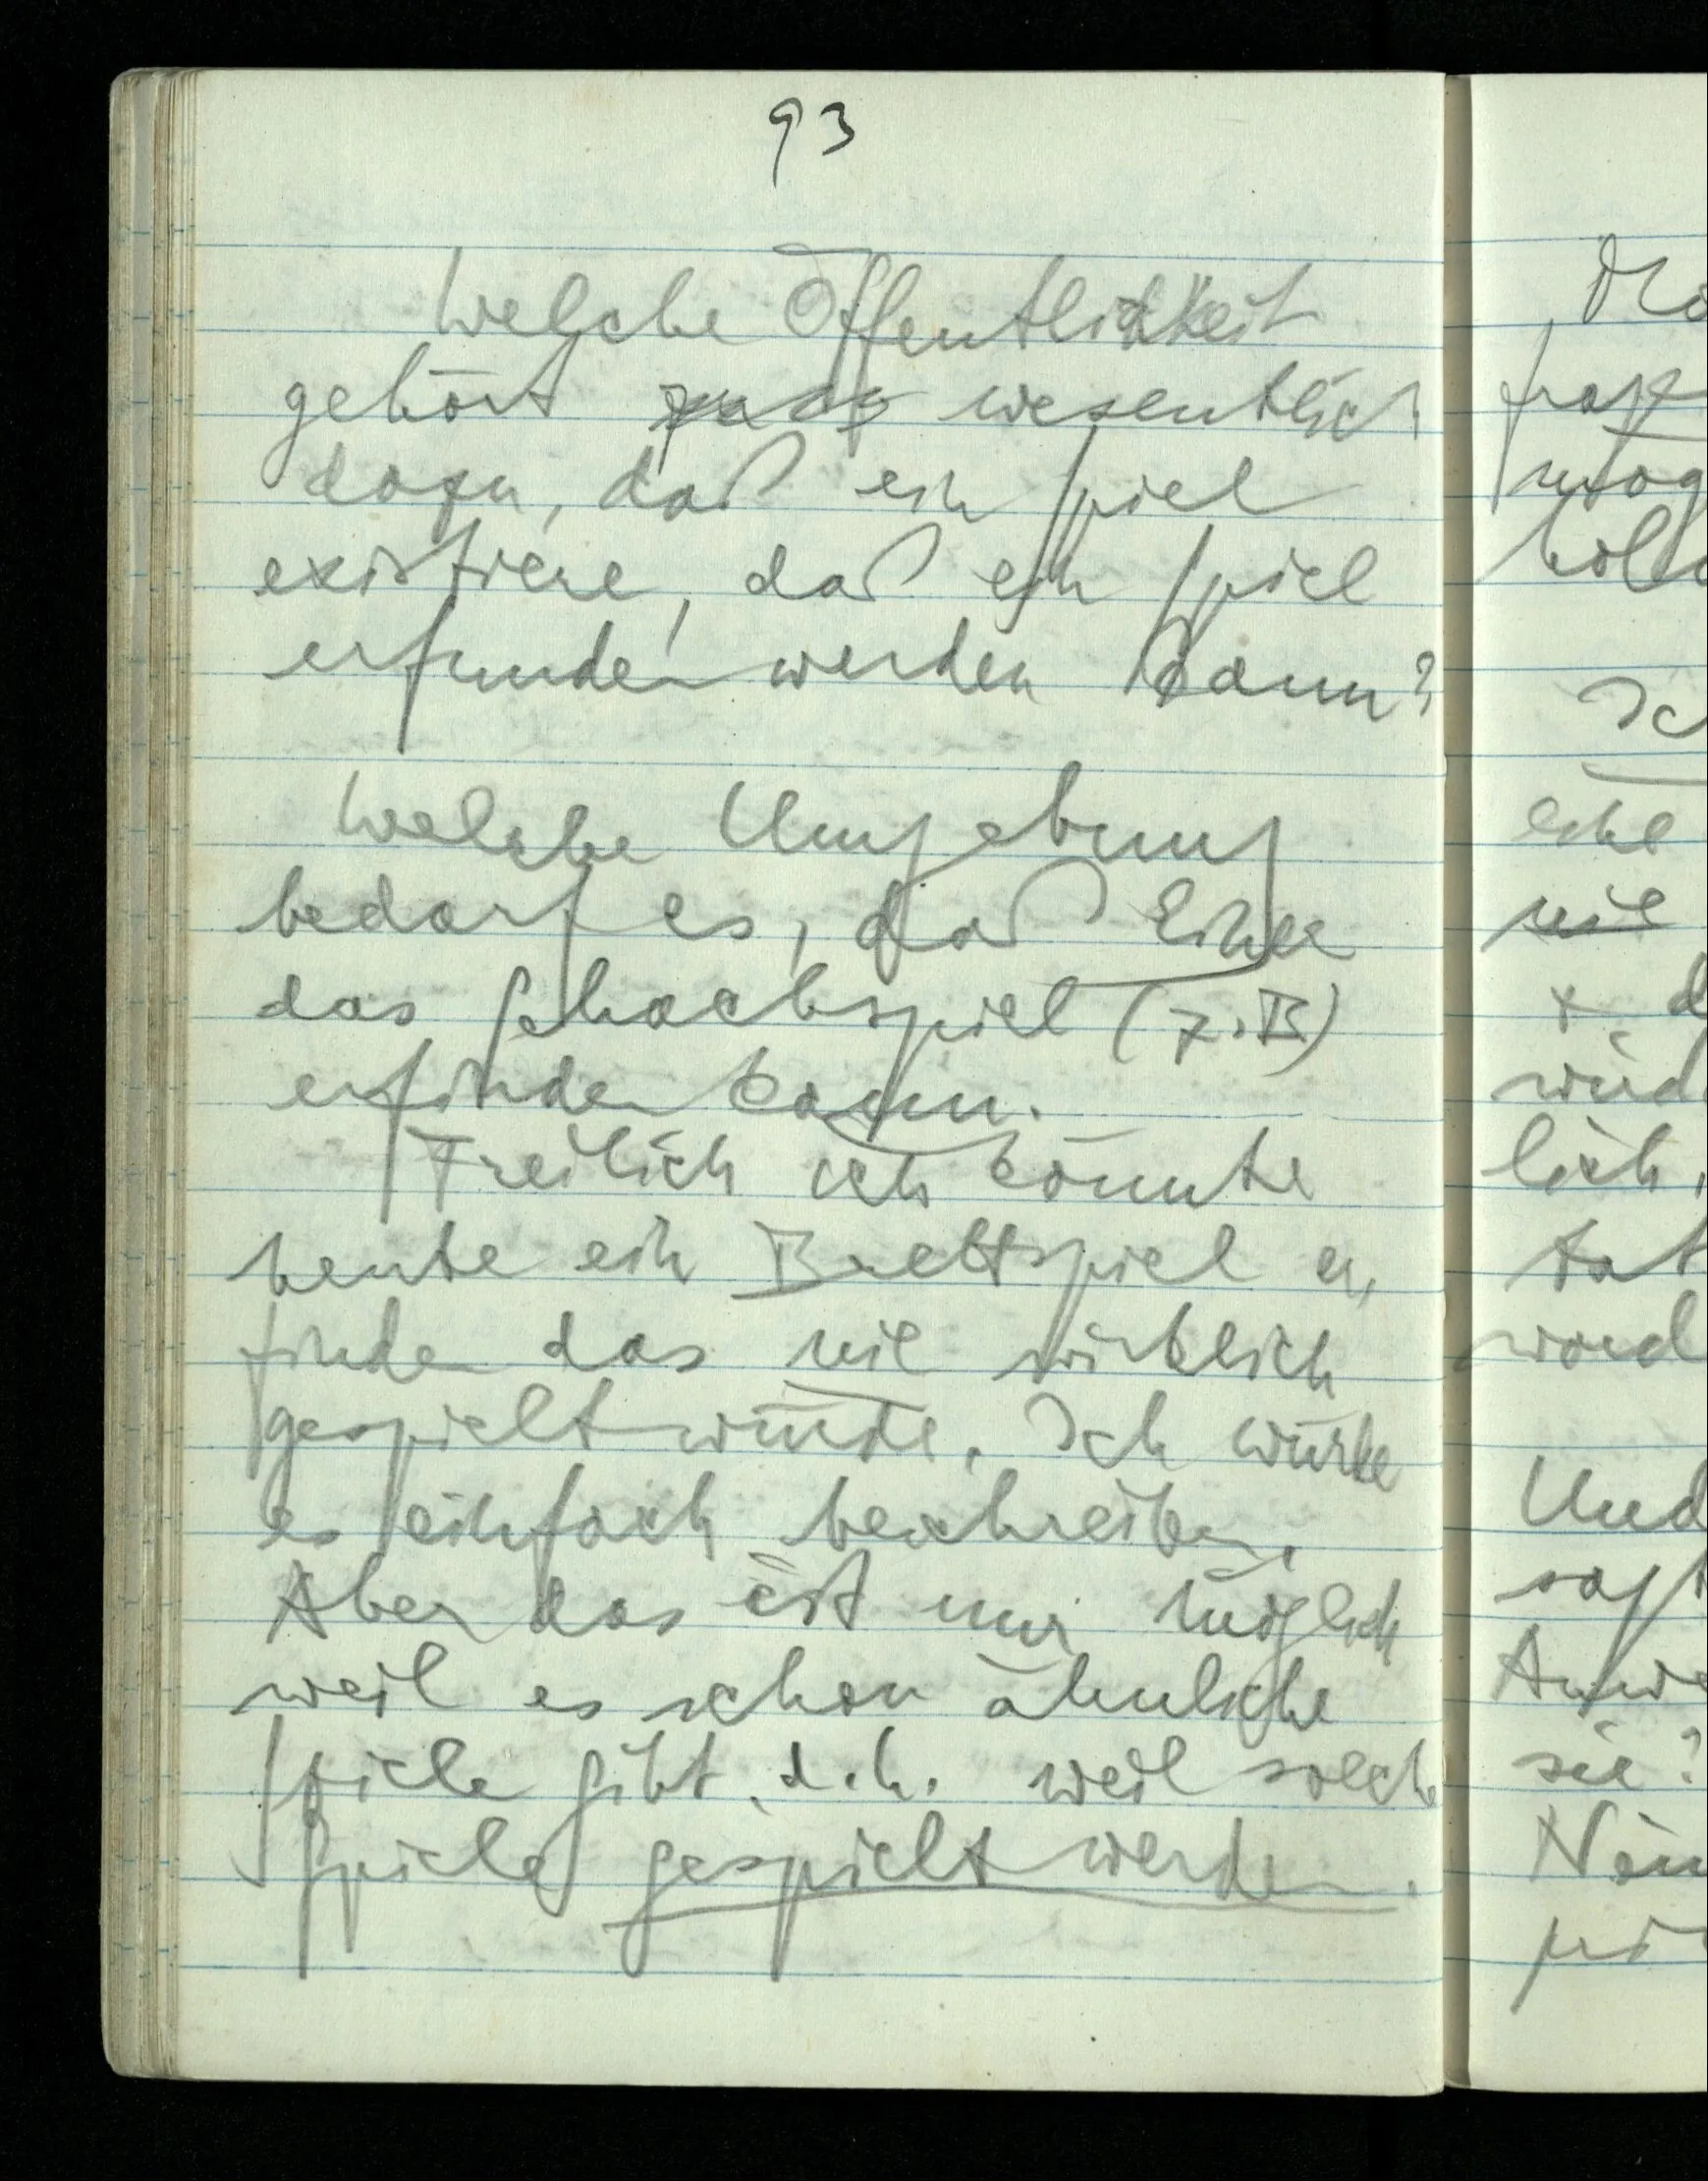 93
Welche Öffentlichkeit
gehört wesentlich
dazu, daß ein Spiel
existiere, daß ein Spiel
erfunden werden kann?
Welche Umgebung
bedarf es, daß Einer
das Schachspiel (z.B)
erfinden kann.
Freilich ich könnte
heute ein Brettspiel er-
finden das nie wirklich
gespielt würde. Ich würde
es einfach beschreiben.
Aber das ist nur möglich
weil es schon ähnliche
Spiele gibt, d.h. weil solche
Spiele gespielt werden.